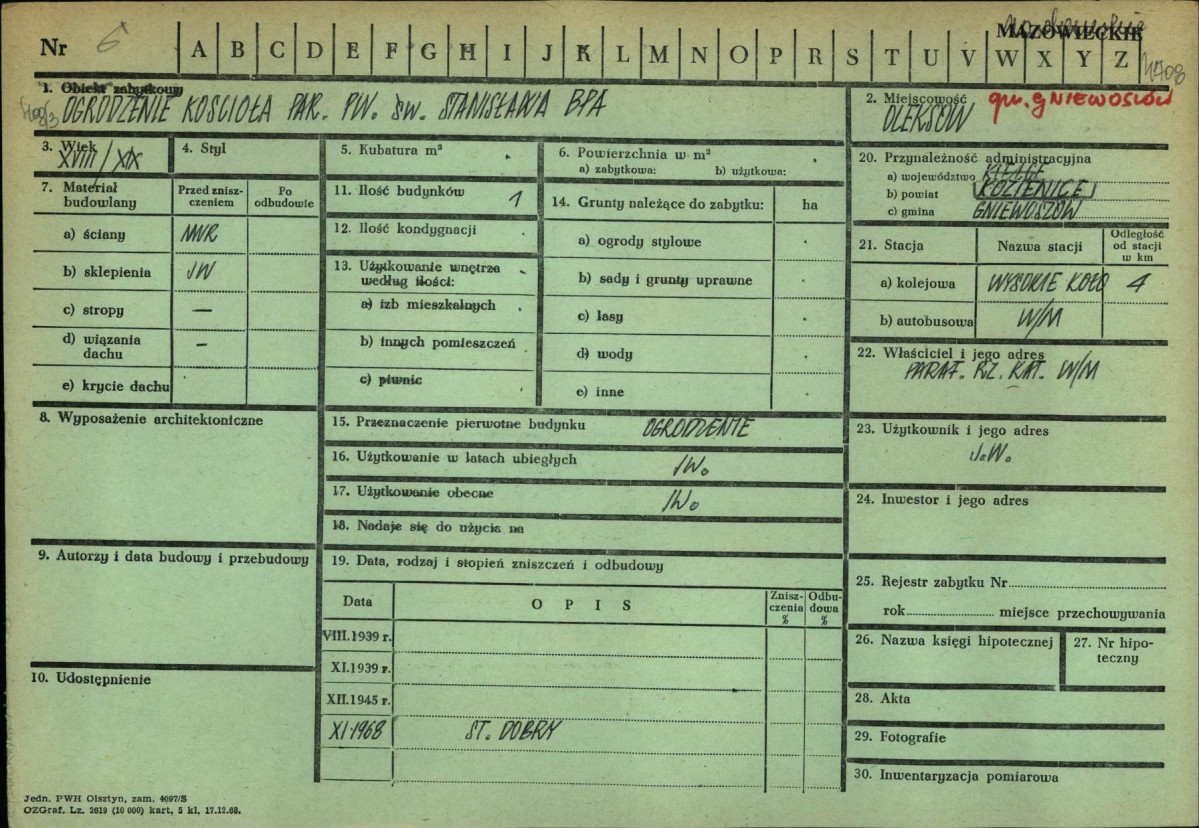 MAZOWIECKIE
Nr 6 A B C D E F G H I J K L M N O P R S T U V W X Y Z
1. Obiekt zabytkowy
OGRODZENIE KOŚCIOŁA PAR. PW. ŚW. STANISŁAWA BPA
2. Miejscowość
OLEKSÓW
gm. GNIEWOSZÓW
3. Wiek
XVIII/XIX
4. Styl
5. Kubatura m³
6. Powierzchnia w m²
a) zabytkowa: b) użytkowa:
20. Przynależność administracyjna
a) województwo KIELCE
b) powiat (KOZIENICE)
c) gmina GNIEWOSZÓW
7. Materiał budowlany
Przed zniszczeniem
Po odbudowie
a) ściany MUR
b) sklepienia JW
c) stropy —
d) wiązania dachu —
e) krycie dachu
11. Ilość budynków 1
12. Ilość kondygnacji
13. Użytkowanie wnętrza według ilości:
a) izb mieszkalnych
b) innych pomieszczeń
c) piwnic
14. Grunty należące do zabytku: ha
a) ogrody stylowe
b) sady i grunty uprawne
c) lasy
d) wody
e) inne
21. Stacja
Nazwa stacji
Odległość od stacji w km
a) kolejowa WYSOKIE KOŁO 4
b) autobusowa W/M
22. Właściciel i jego adres
PARAF. RZ. KAT. W/M
8. Wyposażenie architektoniczne
15. Przeznaczenie pierwotne budynku OGRODZENIE
16. Użytkowanie w latach ubiegłych JW.
17. Użytkowanie obecne JW.
18. Nadaje się do użycia na
23. Użytkownik i jego adres
J.W.
24. Inwestor i jego adres
9. Autorzy i data budowy i przebudowy
19. Data, rodzaj i stopień zniszczeń i odbudowy
Data
O P I S
Zniszczenia %
Odbudowa %
VIII.1939 r.
XI.1939 r.
XII.1945 r.
XI.1968 ST. DOBRY
25. Rejestr zabytku Nr
rok miejsce przechowywania
26. Nazwa księgi hipotecznej
27. Nr hipoteczny
10. Udostępnienie
28. Akta
29. Fotografie
30. Inwentaryzacja pomiarowa
Jedn. PWH Olsztyn, zam. 4097/S
OZGraf. Lz. 2619 (10 000) kart. 5 kl. 17.12.68.